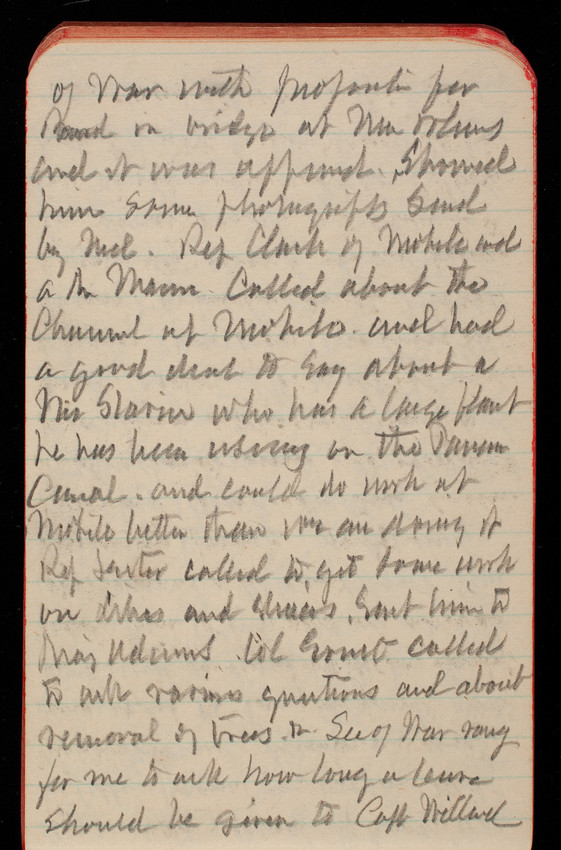 of War with
on bridge at New Orleans
and it was approved. Showed
him some photographs Send
by Mel. Rep Clark of Mobile and
a Mr Mann Called about the
Channel at Mobile and had
a good deal to say about a
Mr Slavin who has a large plant
he has been using on the Panam
Canal. and could do work at
Mobile better than we are doing it
Rep called to get some work
on dikes and Sent him to
Maj Adams. Col Ernst called
to ask various questions and about
removal of trees. Sec of War rang
for me to ask how long a leave
should be given to Capt Willard